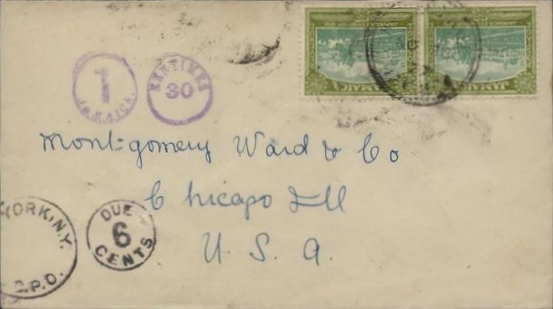 JAMAICA JAMAICA
1
JAMAICA
CENTIMES
30
Montgomery Ward & Co
Chicago Ill
U. S. A.
YORK, N.Y.
P.D.
DUE
6
CENTS